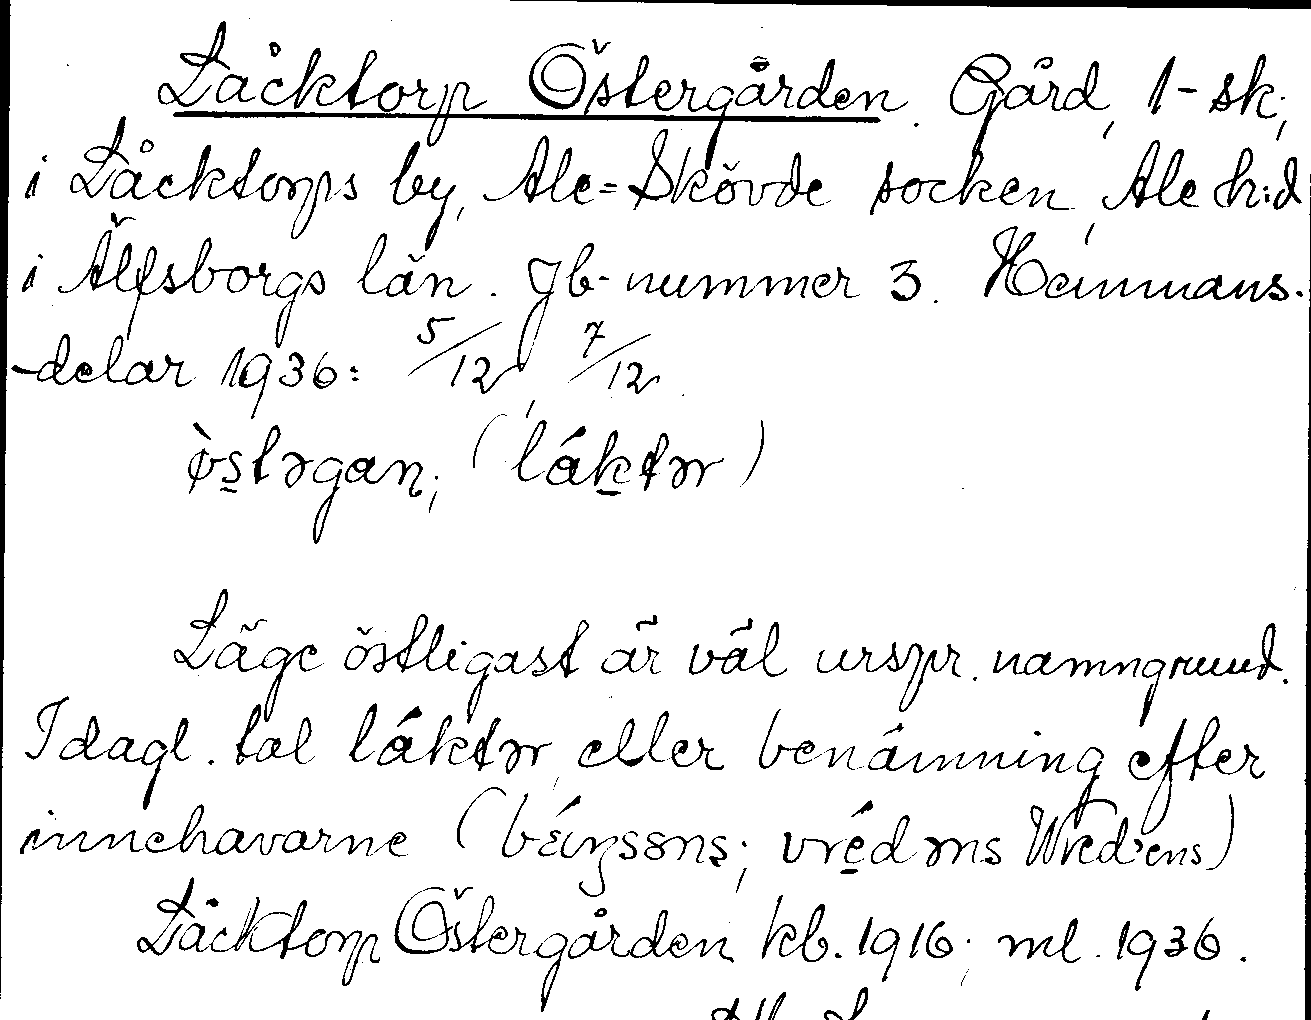 Låcktorp Östergården. Gård, 1-sk;
i Låcktorps by, Ale-Skövde socken, Ale h:d
i Älfsborgs län. Jb-nummer 3. Hemmans-
-delar 1936: 5/12, 7/12.
ø̀stəgan; (láktər)
Läge östligast är väl urspr. namngrund.
I dagl. tal láktər, eller benämning efter
innehavarne (; vrédəns Wred:ens)
Låcktorp Östergården kb. 1916; ml. 1936.